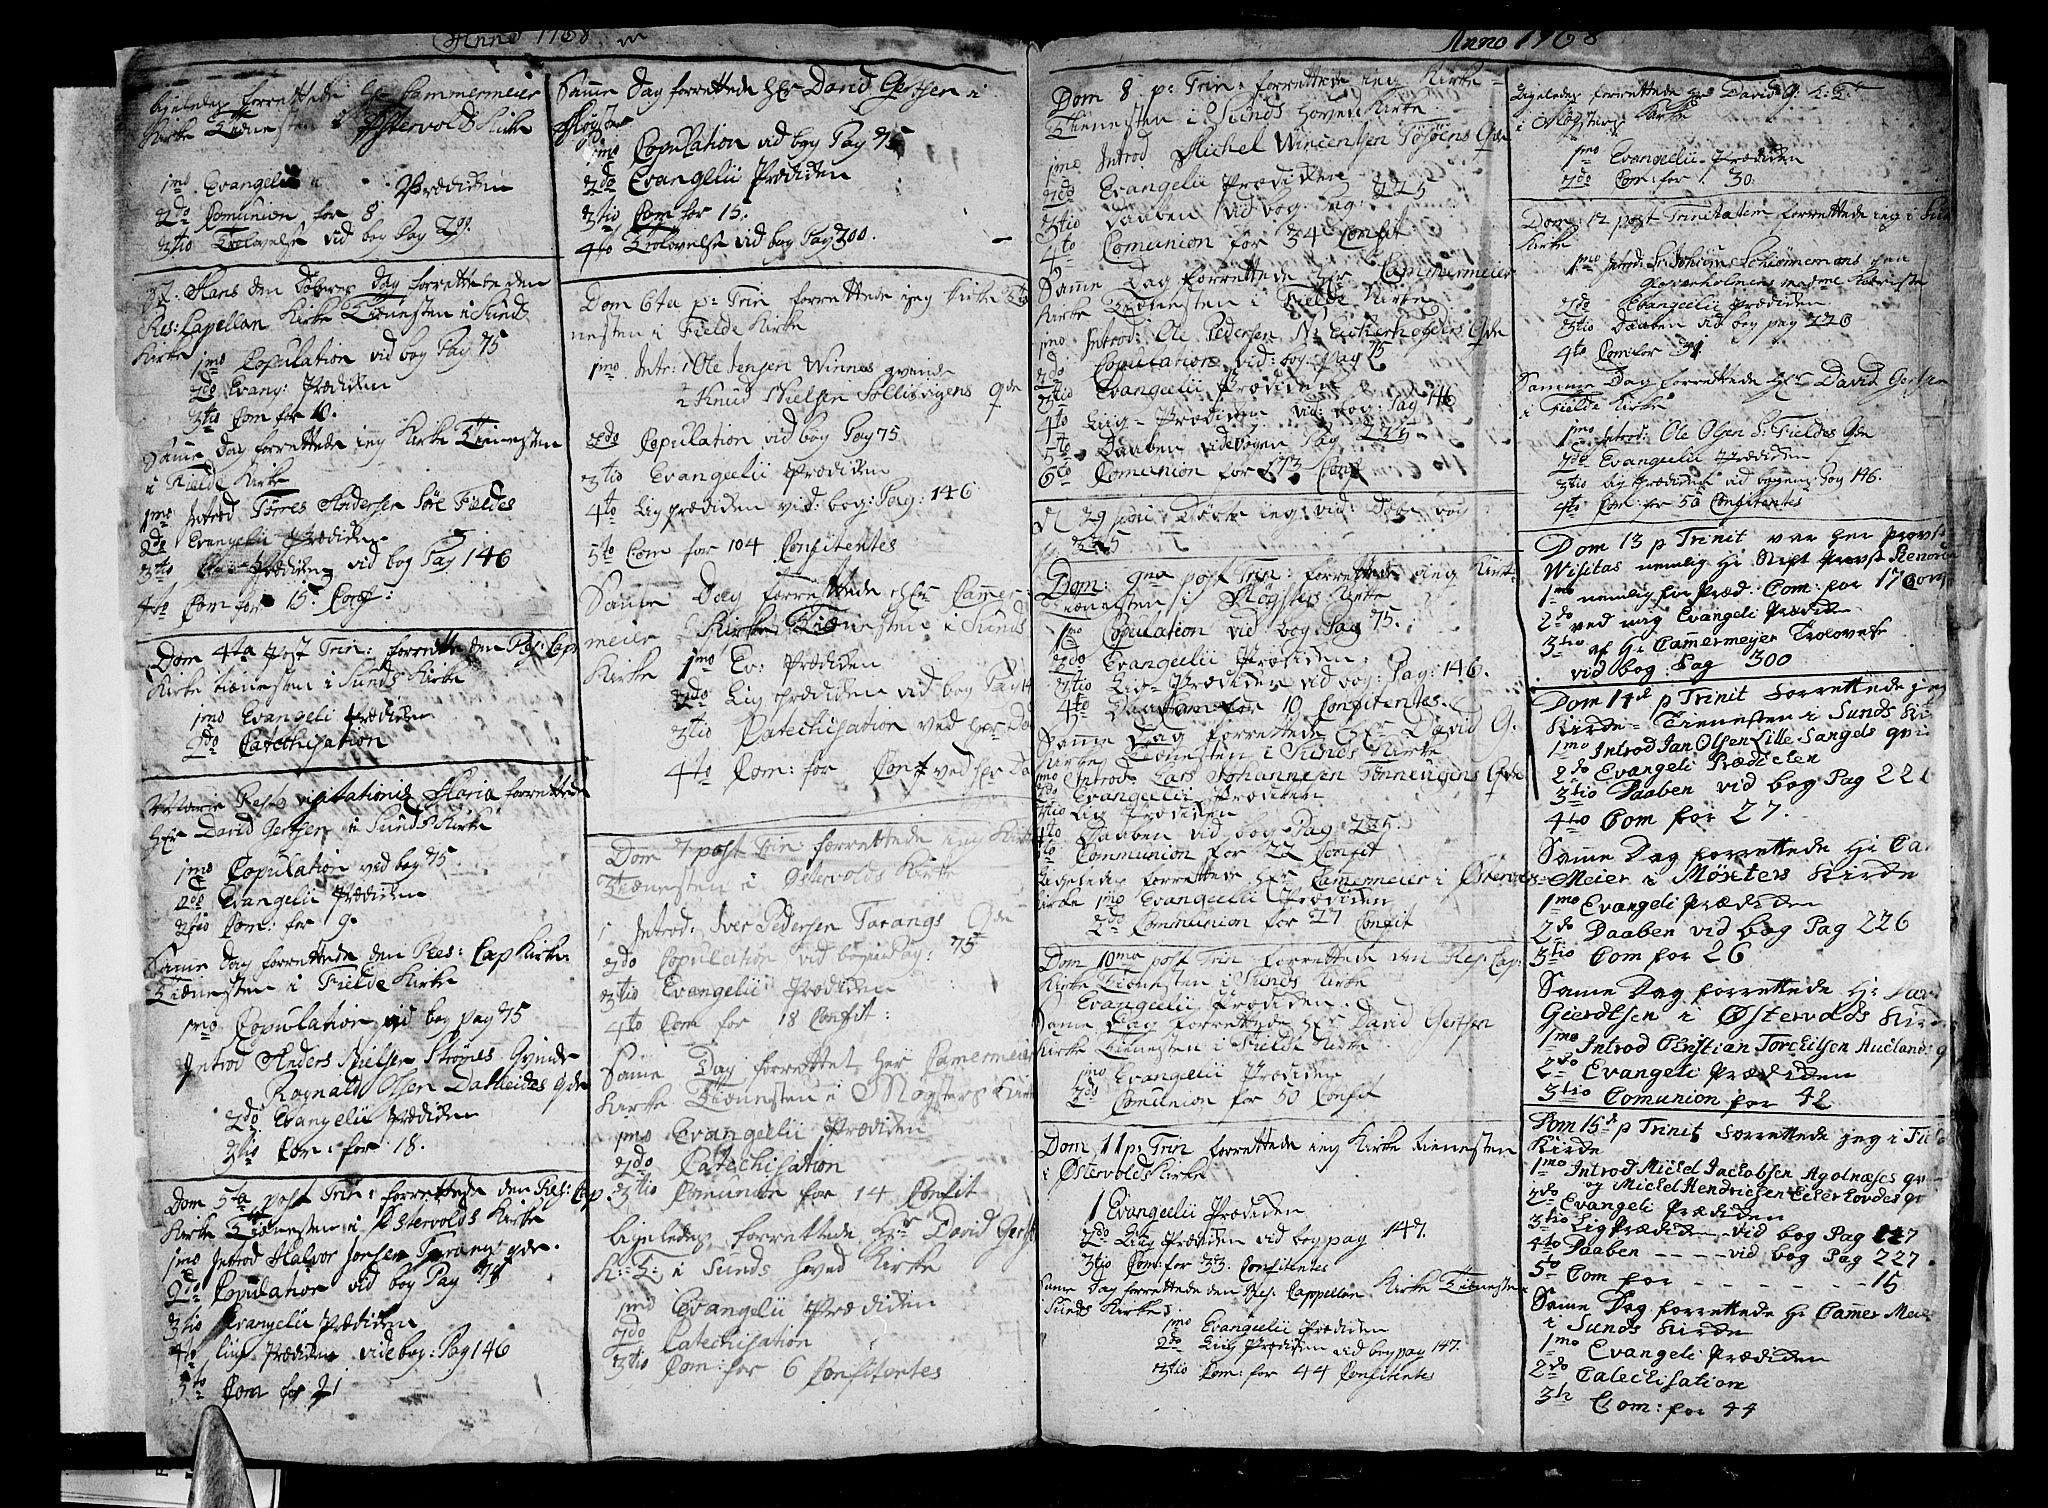 Anno 1768
ligeledes forrettede Hr Cammermeier
Kirke Tiænesten i Østervolds Kirke
1mo Evangelii Prædiken
2do Comunion for 8
3tio Trolovelse vid bog Pag 299.
St. Hans den Døberes Dag forrettede den
Res: Capellan Kirke Tiænesten i Sund
Kirke
1mo Copulation vid bog Pag 75
2do Evang: Prædiken
3tio Com for 10.
Same Dag forrettede ieg Kirke Tiænesten
i Fielde Kirke
1mo Introd Torres Andersen Søre Fieldes
2do Evangelii Prædiken
3tio Prædiken vid bog Pag 146
4to Com for 15. Conf:
Dom 4ta post Trin: forrette den Res: Cap
Kirke tiænesten i Sunds Kirke
1mo Evangeli Prædiken
2do Catechisation
Festo Visitationis Maria forrettede
Hr David Gertsen i Sunds Kirke
1mo Copulation vid bog 75.
2do Evangelii Prædiken
3tio Com: for 9.
Same Dag forrettede den Res: Cap Kirke
Tiænesten i Fielde Kirke
1mo Copulation vid bog pag 75
Introd Anders Nielsen Strønes Qvinde
Ragnald Olsen Dalleides Qde
2do Evangelii Prædiken
3tio Com: for 18.
Dom 5ta post Trin: forrettede den Res: Cap
Kirke Tiænesten i Østervolds Kirke
1mo Introd Halvor Jonsen Tarang qde.
2do Copulation vid bog Pag 75
3tio Evangelii Prædiken
4to liig Prædiken vide bog: Pag 146
5to Com for 21
Same Dag forrettede Hr David Gertsen i
Møgster
1mo Copulation vid bog Pag 75
2do Evangelii Prædiken
3tio Com for 15.
4to Trolovelse vid bog Pag 300.
Dom 6ta p: Trin forrettede ieg Kirke Tiæ
nesten i Fielde Kirke
1mo Intr: 1 Ole Jensen Winnes qvinde
2 Knud Nielsen Qde
2do Copulation vid bog Pag 75
3tio Evangelii Prædiken
4to Lig prædiken vid: bog: Pag: 146
5to Com for 104 Confitentes
Same Dag forrettede Hr Camer
meier Kirke Tiænesten i Sunds
Kirke 1mo Ev: Prædiken
2do Lig Prædiken vid bog Pag
3tio Catechisation ved Hr Da
4to Com: for Conf ved Hr Da
Dom 7 post Trin: forrettede ieg Kirke
Tiænesten i Østervolds Kirke
1 Introd: Iver Pedersen Tarangs Qde
2do Copulation vid bog Pag: 75
3tio Evangelii Prædiken
4to Com for 18 Confit:
Same Dag forrettet Her Camermeier
Kirke Tiænesten i Møgsters Kirke
1mo Evangelii Prædiken
2do Catechisation
3tio Comunion for 14 Confit
ligeledes forrettede Hr David Gertsen
K: T: i Sunds Hoved Kirke
1mo Evangelii Prædiken
2do Catechisation
3tio Com: for 6 Confitentes
Anno 1768
Dom 8 p: Trin: forrettede ieg Kirke
Tienesten i Sunds Hoved Kirke
1mo Introd Michel Wincentsen Qde
2do Evangelii Prædiken
3tio Daaben vid bog Pag: 225
4to Comunion for 34 Confit
Same Dag forrettede Hr Cammermeier
Kirke Tiænesten i Fielde Kirke
1mo Introd: Ole Pedersen N: Eickerhofders Qde
2do Copulation vid: bog: Pag 75
3tio Evangelii Prædiken
4to Liig-Prædiken vid: bog: Pag 146
5to Daaben vide bogen Pag 225
6to Comunion for 73 Conf
D 29 Juni: Døbte ieg vid: Døbe bog
225
Dom: 9na post Trin: forrettede ieg Kirke
Tiænesten i Møgsters Kirke
1mo Copulation vid bog Pag 75.
2do Evangelii Prædiken
3tio Lig-Prædiken vid bog: Pag: 146.
4to Com for 10 Confitentes.
Same Dag forrettede Hr David G.
Kirke Tiænesten i Sunds Kirke
1mo Introd: Lars Johannesen Tønnevigens Qde
2do Evangelii Prædiken
3tio Lig Prædiken
4to Daaben vid bog Pag 225.
5to Communion for 22 Confit
Ligeledes forrettede Hr Camermeier i Østervolds
Kirke 1mo Evangelii Prædiken
2do Communion for 27 Confit
Dom 10ma post Trin forrettede den Res: Cap:
Kirke Tiænesten i Sunds Kirke
Evangelii Prædiken.
Same Dag forrettede Hr David Gertsen
Kirke Tiænesten i Fielde Kirke
1mo Evangelii Prædiken
2do Comunion for 50 Confit
Dom 11 p: Trin forrettede ieg Kirke tienesten
i Østervolds Kirke
1 Evangelii Prædiken
2do Liig Prædiken vid bog pag 147.
3tio Com: for 33. Confitentes
Same Dag forrettede den Res: Cappellan Kirke Tiænesten
Sunds Kirke
1mo Evangelii Prædiken
2do Liig Prædiken vid bog pag 147.
3tio Com: for 44 Confitentes
Ligeledes forrettede Hr David G: K: T:
i Møgsters Kirke
1mo Evangelii Prædiken
2do Com: for 1 30.
Dom: 12 post Trinitatem forrettede ieg i Sunds
Kirke
1mo Introd: Sr Johan Schiønnemans
2do Evangelii Prædiken
3tio Daaben vid bog pag 226
4to Com: for 31
Samme Dag forrettede Hr David Gertsen
i Fielde Kirke
1mo Introd: Ole Olsen S: Fieldes Qde
2do Evangelii Prædiken
3tio Lig Prædiken vid bogens Pag 146.
4to Com: for 50 Confitentes
Dom 13 p Trinit var her Provste
Wisitas nemlig Hr Stift Provst
1mo nemlig hr Præd: Com: for 17 Conf
2do ved mig Evangeli Prædiken
3tio af Hr Cammermeyer Trolovelse
vid bog: Pag 300
Dom 14d p Trinit Forrettede jeg
Kirke-Tienesten i Sunds Kir
1mo Introd Jan Olsen Lille Sangels qvi
2do Evangeli Prædicken
3tio Daaben vid bog Pag 226
4to Com for 27.
Same Dag forrettede Hr Cam
Meier i Moxters Kirke
1mo Evangeli Prædiken
2do Daaben vid bog Pag 226
3tio Com for 26
Same Dag forrettede Hr David
Gierdtsen i Østervolds Kirke
1mo Introd Christian Torchilsen Auclands q
2do Evangeli Prædiken
3tio Comunion for 42
Dom 15d p Trinit Forrettede jeg i Field
Kirde
1mo Introd Mickel Jackobsen Agolnæses qv
og Mickel Hendrichsen qv
2do Evangeli Prædiken
3tio Lig Prædiken vid bog Pag 147
4to Daaben - - - vid bog Pag 227
5to Com for - - - - - - 15
Same Dag forrettede Hr Camer Meier
i Sunds Kirde
1mo Evangeli Prædiken
2do Catechisation
3ti Com: for 44